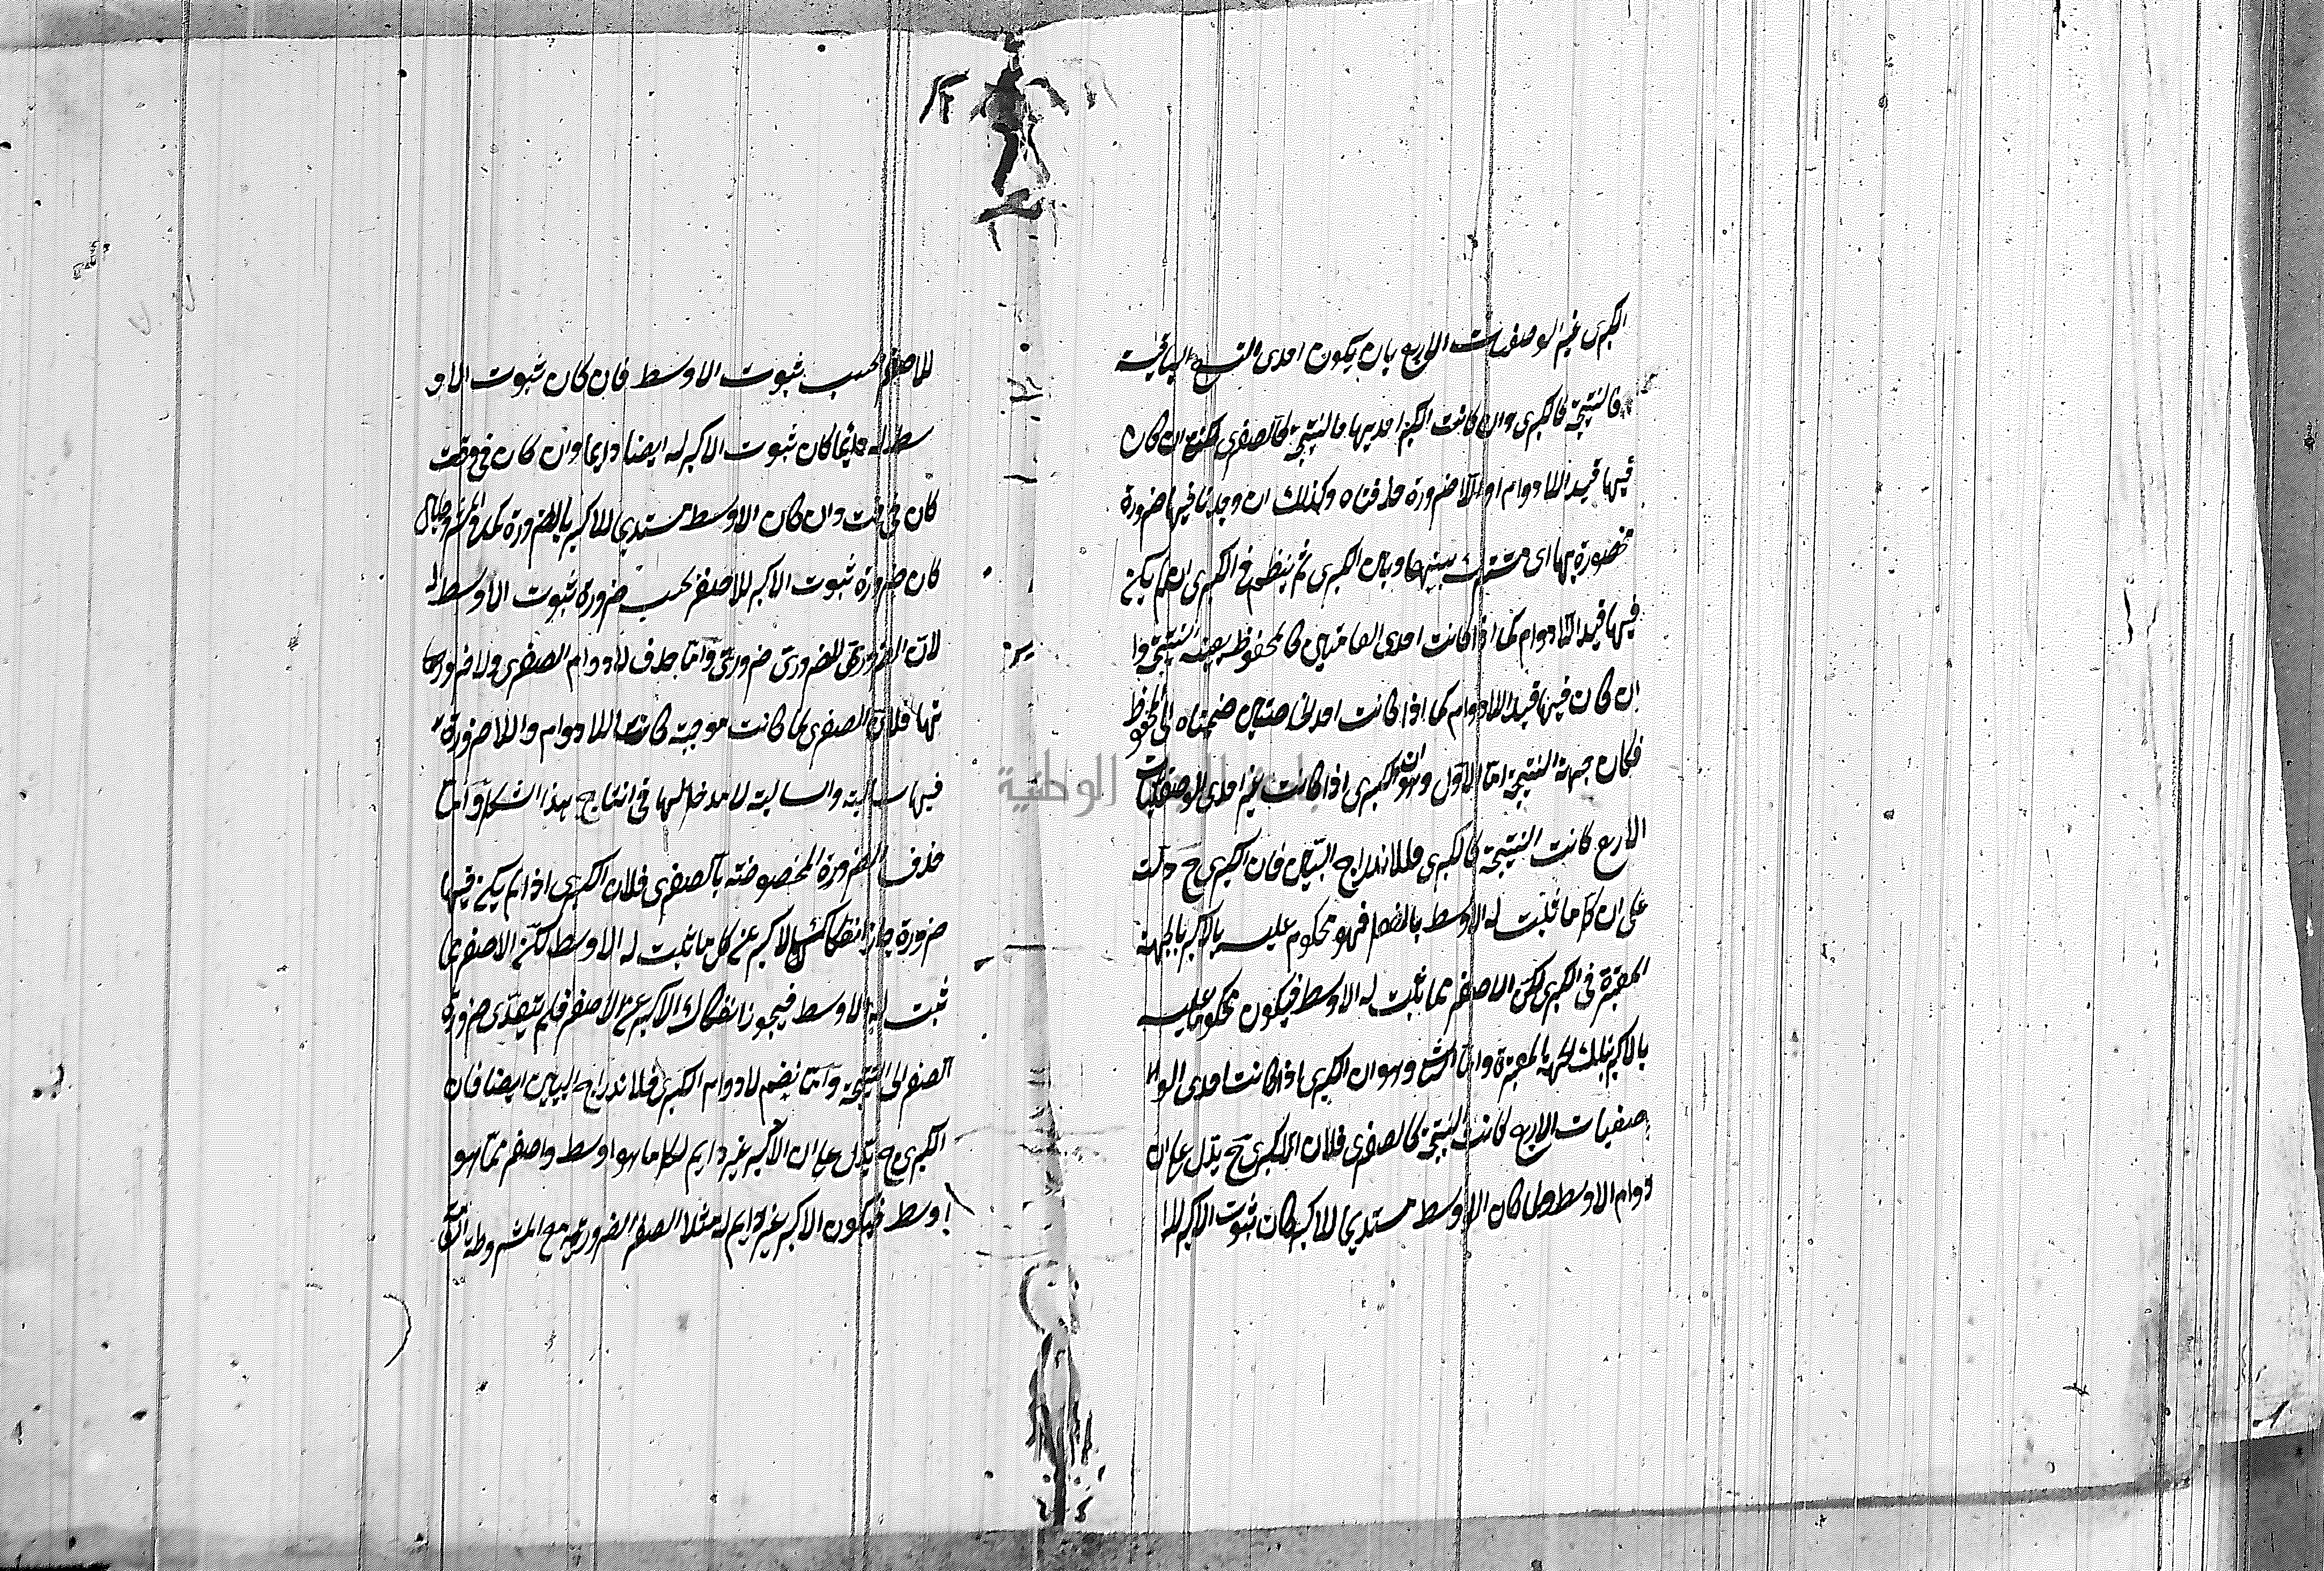 الكبرى غير الوصفيات الاربع بان يكون احدى التسع الباقية
فالنتيجة كالكبرى وان كانت الكبرى احديها فالنتيجة كالصغرى لكن ان كان
فيها قيد اللادوام او اللاضرورة حذفناه وكذلك ان وجدنا فيها ضرورة
مخصوصة بها اى مشترك بينها وبين الكبرى ثم ينظر فى الكبرى ان لم يكن
فيها قيد اللادوام كما اذا كانت احدى العامتين كالمحفوظ بعينه النتيجة وا
ان كان فيها قيد اللادوام كما اذا كانت احدى الخاصتين ضممناه الى المحفوظ
فكان جهة النتيجة اما الاول وهو ان الكبرى اذا كانت غير احدى الوصفيات
الاربع كانت النتيجة كالكبرى فللاندراج البين فان الكبرى ح دلت
على ان كل ما ثبت له الاوسط بالفعل فهو محكوم عليه بالاكبر بالجهة
المعتبرة فى الكبرى لكن الاصغر مما ثبت له الاوسط فيكون محكوما عليه
بالاكبر بتلك الجهة المعتبرة واما الثانى وهو ان الكبرى اذا كانت احدى الو
صفيات الاربع كانت النتيجة كالصغرى فلان الكبرى ح يدل على ان
دوام الاوسط ولما كان الاوسط مستديما للاكبر كان ثبوت الاكبر لا
للاصغر بحسب ثبوت الاوسط فان كان ثبوت الاو
سط له دائما كان ثبوت الاكبر له ايضا دايما وان كان فى وقت
كان فى وقت وان كان الاوسط مستديما للاكبر بالضرورة كما فى المشروطتين
كان ضرورة ثبوت الاكبر للاصغر بحسب ضرورة ثبوت الاوسط له
لان الضرورى للضرورى ضرورى واما حذف لادوام الصغرى ولا ضرور
تها فلان الصغرى لما كانت موجبة كانت اللادوام واللاضرورة
فيها سالبة والسالبة لا مدخل لها فى انتاج هذا الشكل واما
حذف الضرورة المخصوصة بالصغرى فلان الكبرى اذا لم يكن فيها
ضرورة جاز انفكاك الاكبر عن كل ما ثبت له الاوسط لكن الاصغر مما
ثبت له الاوسط فيجوز انفكاك الاكبر عن الاصغر فلم يتعدى ضرورة
الصغرى الى النتيجة واما نضم لادوام الكبرى فللاندراج البين ايضا فان
الكبرى ح يدل على ان الاكبر غير دايم لكل ما هو اوسط واصغر مما هو
اوسط فيكون الاكبر غير دايم له مثلا الصغرى الضرورية مع المشروطة العامة